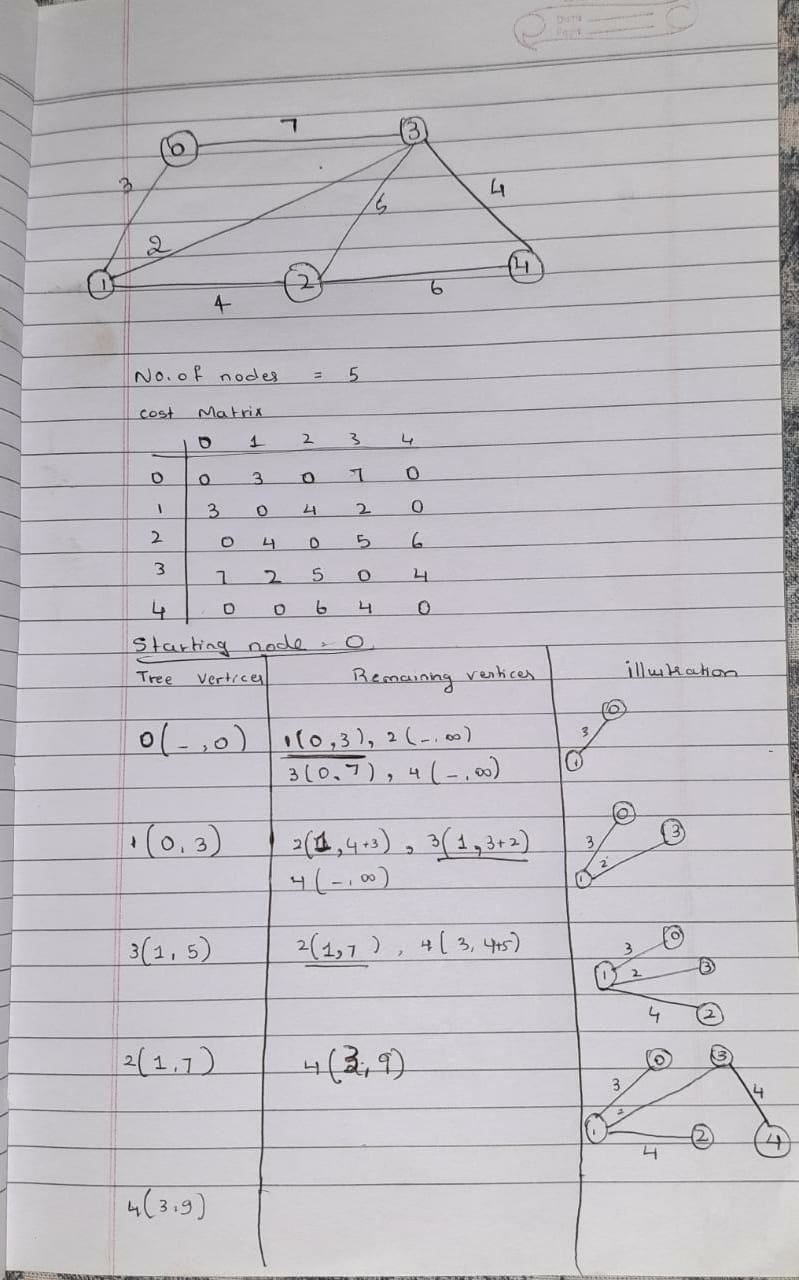 7
0 3
3 5 4
2
1 2 4
4 6
No. of nodes = 5
cost Matrix
0 1 2 3 4
0 0 3 0 7 0
1 3 0 4 2 0
2 0 4 0 5 6
3 7 2 5 0 4
4 0 0 6 4 0
Starting node = 0
Tree vertices Remaining vertices illustration
0(-,0) 1(0,3), 2(-,∞)
3(0,7), 4(-,∞)
0
3
1
1(0,3) 2(1,4+3), 3(1,3+2)
4(-,∞)
0
3 3
1 2
3(1,5) 2(1,7), 4(3,4+5)
3 0
1 2 3
4 2
2(1,7) 4(3,9)
0 3
3 4
2
1 2 4
4
4(3,9)